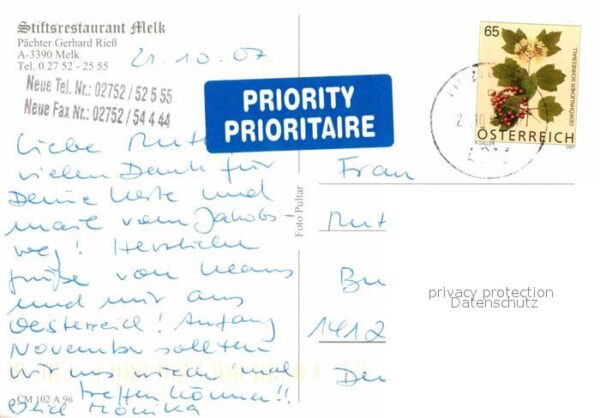 Stiftsrestaurant Melk
Pächter Gerhard Rieß
A-3390 Melk
Tel. 0 27 52 - 25 55
Neue Tel. Nr.: 02752 / 52 5 55
Neue Fax Nr.: 02752 / 54 4 44
21.10.07
PRIORITY
PRIORITAIRE
65
GEWÖHNLICHER SCHNEEBALL
ÖSTERREICH
2007
Liebe Ruth
vielen Dank für
Deine Karte und
mail vom Jakobs-
weg! Herzliche
Grüße von Klaus
und mir aus
Oesterreich! Anfang
November sollten
wir uns wieder mal
treffen können!!
Deine Monika
Foto Pultar
Frau
Rut
Bu
1412
Du
privacy protection
Datenschutz
CM 102 A 96